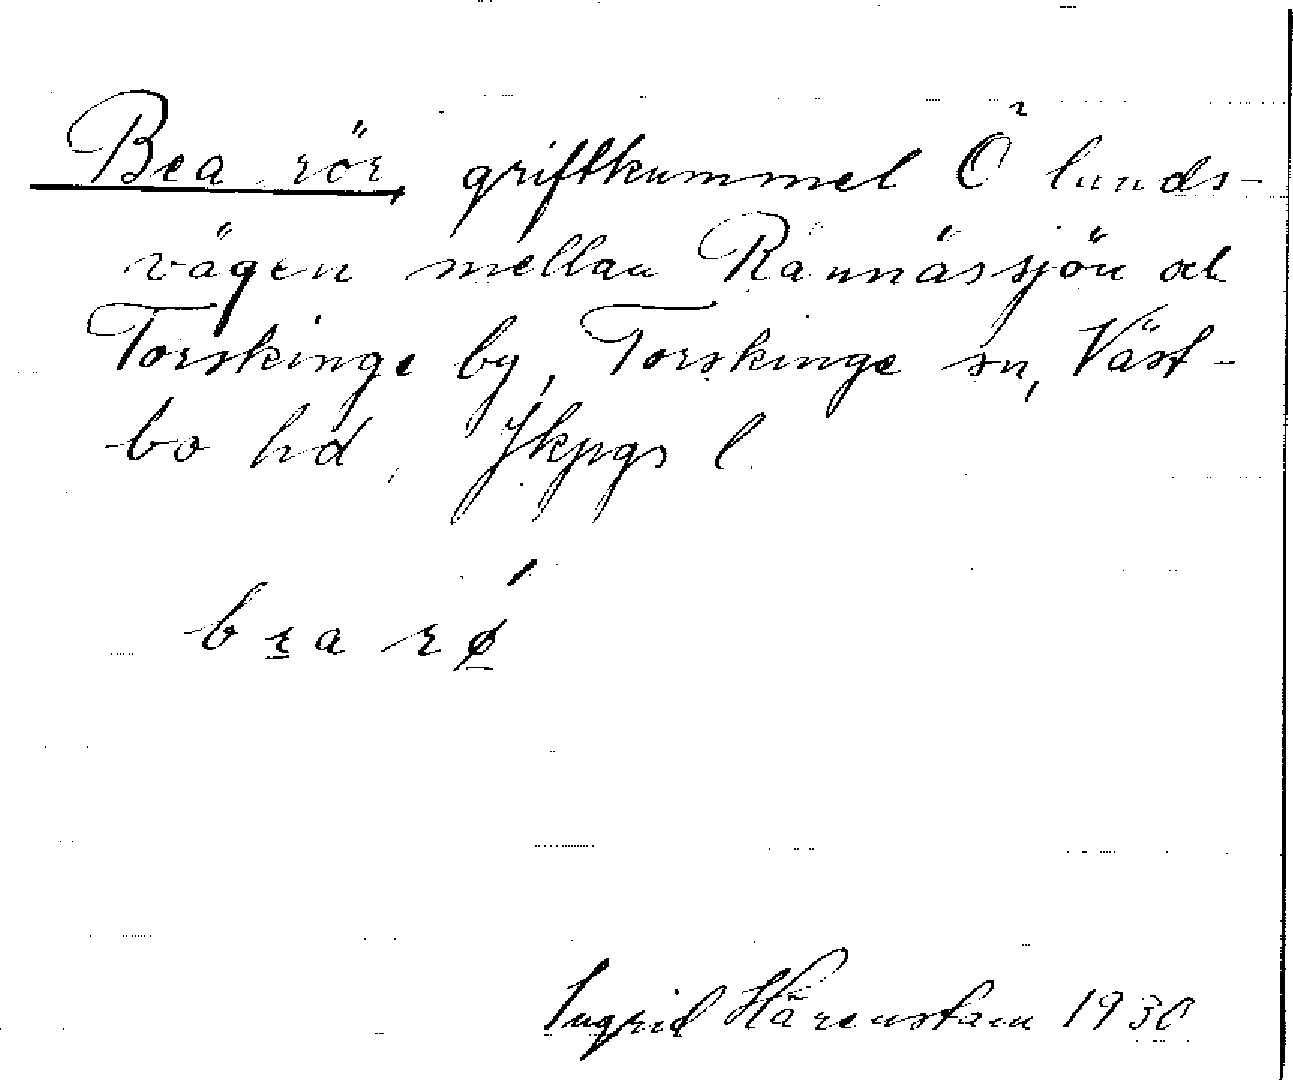 Bea rör, griftkummel Ö lands-
vägen mellan Rannässjön och
Torskinge by, Torskinge sn, Väst-
bo hd, Jkpgs l.
bea rø
Ingrid Härenstam 1930